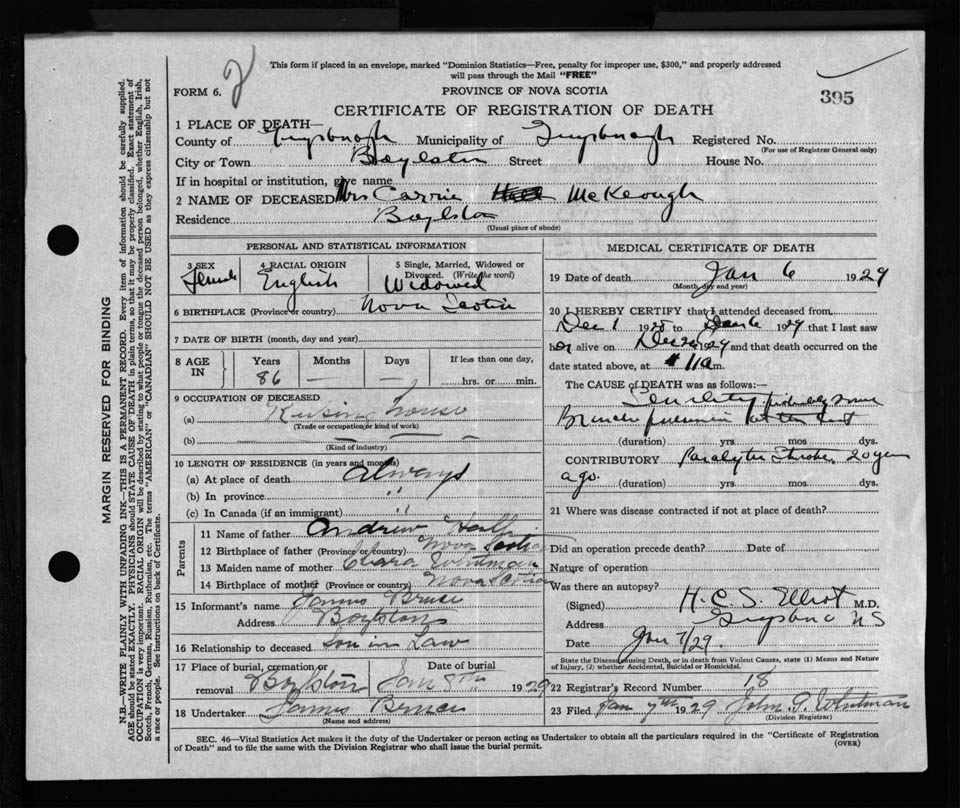 This form if placed in an envelope, marked "Dominion Statistics—Free, penalty for improper use, $300," and properly addressed
will pass through the Mail "FREE"
FORM 6. 2 PROVINCE OF NOVA SCOTIA 395
CERTIFICATE OF REGISTRATION OF DEATH
1 PLACE OF DEATH—
County of Guysborough Municipality of Guysborough Registered No.
(For use of Registrar General only)
City or Town Boylston Street House No.
If in hospital or institution, give name
2 NAME OF DECEASED Mrs Carrie McKeough
Residence Boylston
(Usual place of abode)
PERSONAL AND STATISTICAL INFORMATION
3 SEX 4 RACIAL ORIGIN 5 Single, Married, Widowed or
Divorced. (Write the word)
Female English Widowed
6 BIRTHPLACE (Province or country) Nova Scotia
7 DATE OF BIRTH (month, day and year)
8 AGE IN Years Months Days If less than one day,
86 — — hrs. or min.
9 OCCUPATION OF DECEASED
(a) Keeping house
(Trade or occupation or kind of work)
(b) — — —
(Kind of industry)
10 LENGTH OF RESIDENCE (in years and months)
(a) At place of death Always
(b) In province "
(c) In Canada (if an immigrant) "
Parents
11 Name of father Andrew
12 Birthplace of father (Province or country) Nova Scotia
13 Maiden name of mother Clara Whitman
14 Birthplace of mother (Province or country) Nova Scotia
15 Informant's name James Bruce
Address Boylston
16 Relationship to deceased Son in Law
17 Place of burial, cremation or Date of burial
removal Boylston Jan 8th 1929
18 Undertaker James Bruce
(Name and address)
MEDICAL CERTIFICATE OF DEATH
19 Date of death Jan 6 1929
(Month, day and year)
20 I HEREBY CERTIFY that I attended deceased from
Dec 1 1928 to 1929 that I last saw
her alive on 1929 and that death occurred on the
date stated above, at 11 a m.
The CAUSE OF DEATH was as follows:—
Senility probably some
Broncho pneumonia at the last
(duration) yrs. mos. dys.
CONTRIBUTORY Paralytic Stroke, 20 years
ago. (duration) yrs. mos. dys.
21 Where was disease contracted if not at place of death?
Did an operation precede death? Date of
Nature of operation
Was there an autopsy?
(Signed) H. C. S. Elliot M.D.
Address Guysboro NS
Date Jan 7/29.
State the Disease causing Death, or in death from Violent Causes, state (1) Means and Nature
of Injury, (2) whether Accidental, Suicidal or Homicidal.
22 Registrar's Record Number 18
23 Filed Jan 7th 1929 John G. Whitman
(Division Registrar)
SEC. 46—Vital Statistics Act makes it the duty of the Undertaker or person acting as Undertaker to obtain all the particulars required in the "Certificate of Registration
of Death" and to file the same with the Division Registrar who shall issue the burial permit. (OVER)
MARGIN RESERVED FOR BINDING
N.B.—WRITE PLAINLY WITH UNFADING INK—THIS IS A PERMANENT RECORD. Every item of information should be carefully supplied.
AGE should be stated EXACTLY. PHYSICIANS should STATE CAUSE OF DEATH in plain terms, so that it may be properly classified. Exact statement of
OCCUPATION is very important. RACIAL ORIGIN will be described by stating to what people or tongue the deceased person belonged, whether English, Irish,
Scotch, French, German, Russian, Ruthenian, etc. The terms "AMERICAN" or "CANADIAN" SHOULD NOT BE USED as they express citizenship but not
a race or people. See instructions on back of Certificate.